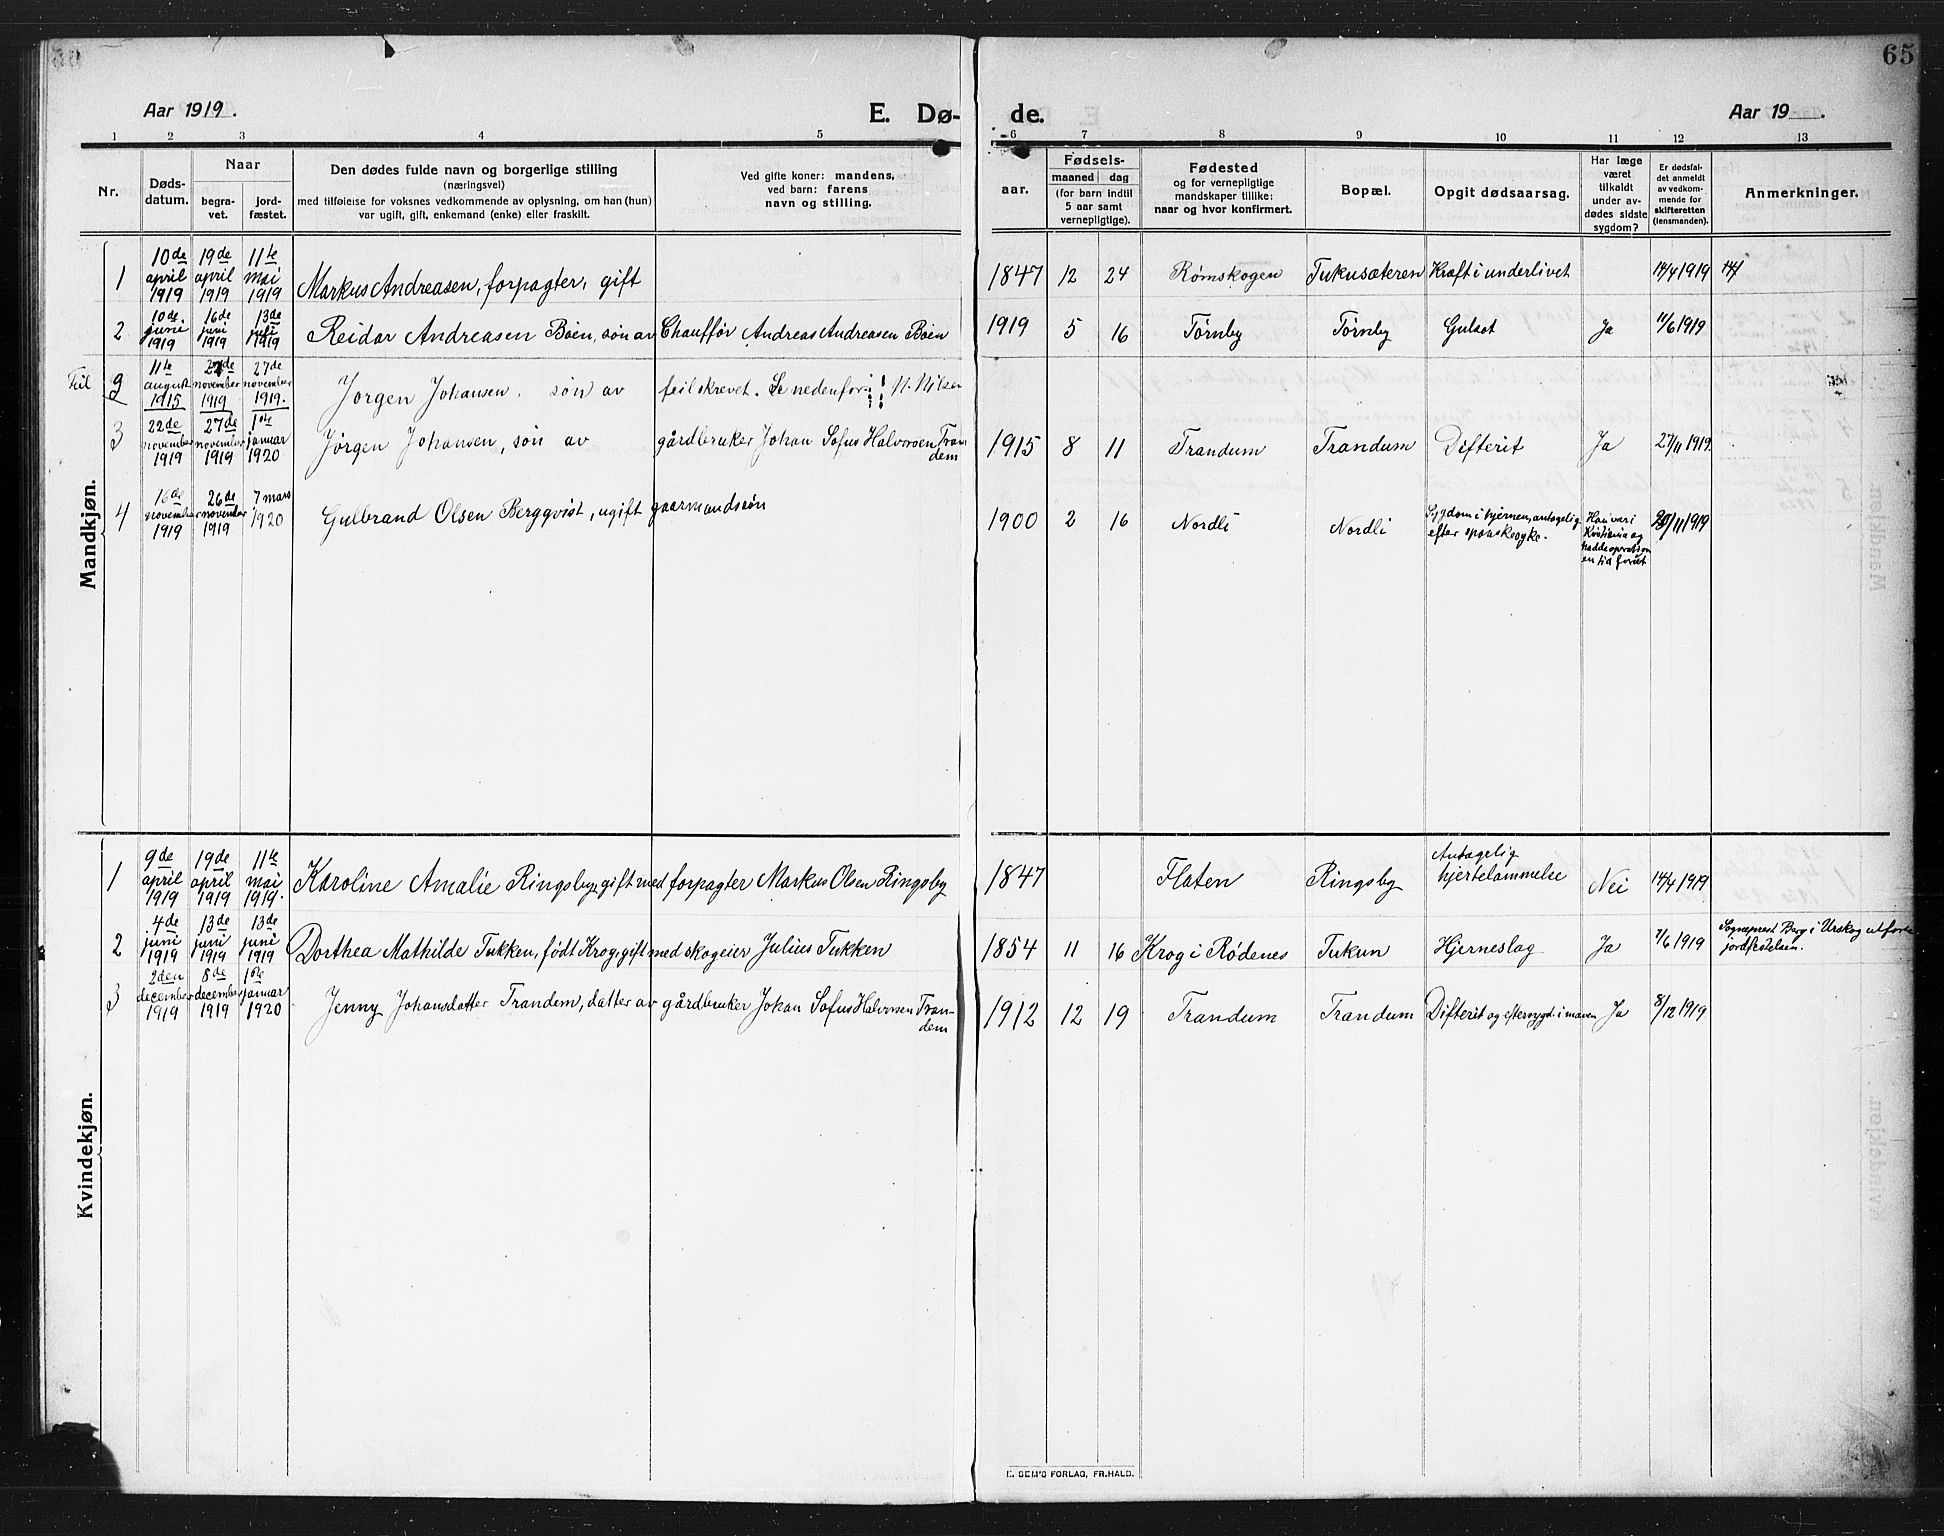 65
Aar 1919.
E. Dø-
de.
Aar 19   .
1 2 3 4 5 6 7 8 9 10 11 12 13
Nr.
Døds-
datum.
Naar
begra-
vet.
jord-
fæstet.
Den dødes fulde navn og borgerlige stilling
(næringsvei)
med tilføielse for voksnes vedkommende av oplysning, om han (hun)
var ugift, gift, enkemand (enke) eller fraskilt.
Ved gifte koner: mandens,
ved barn: farens
navn og stilling.
aar.
Fødsels-
maaned dag
(for barn indtil
5 aar samt
vernepligtige).
Fødested
og for vernepligtige
mandskaper tillike:
naar og hvor konfirmert.
Bopæl.
Opgit dødsaarsag.
Har læge
været
tilkaldt
under av-
dødes sidste
sygdom?
Er dødsfal-
det anmeldt
av vedkom-
mende for
skifteretten
(lensmanden).
Anmerkninger.
Mandkjøn.
1 10de april 1919 19de april 1919 11te mai 1919 Markus Andreasen, forpagter, gift 1847 12 24 Rømskogen Tukusæteren Kræft i underlivet 14/4 1919
2 10de juni 1919 16de juni 1919 13de juli 1919 Reidar Andreasen Bøen, søn av Chauffør Andreas Andreasen Bøen 1919 5 16 Tørnby Tørnby Gulsot Ja 11/6 1919
11te august 1915 november 1919 27de november 1919. Jørgen Johansen, søn av feilskrevet. Se nedenfor
3 22de november 1919 27de november 1919 1ste januar 1920 Jørgen Johansen, søn av gårdbruker Johan Sofus Halvorsen Trandem 1915 8 11 Trandum Trandum Difterit Ja 27/11 1919.
4 16de november 1919 26de november 1919 7 mars 1920 Gulbrand Olsen Bergqvist, ugift gaarmandssøn 1900 2 16 Nordli Nordli Sygdom i hjernen, antagelig efter spanskesyke. Han var i Kristiania og hadde operation en tid forut /11 1919
Kvindekjøn.
1 9de april 1919 19de april 1919 11te mai 1919. Karoline Amalie Ringsby, gift med forpagter Markus Olsen Ringsby 1847 Flaten Ringsby Antagelig hjertelammelse Nei 14/4 1919
2 4de juni 1919 13de juni 1919 13de juni 1919 Dorthea Mathilde Tukken, født Krog, gift med skogeier Julius Tukken 1854 11 16 Krog i Rødenes Tukun Hjerneslag Ja 7/6 1919 Sogneprest Borg i Urskog utførte jordfestelsen.
3 2den december 1919 8de december 1919 1ste januar 1920 Jenny Johansdatter Trandem, datter av gårdbruker Johan Sofus Halvorsen Trandem 1912 12 19 Trandum Trandum Difterit og eftersygd. i maven Ja 8/12 1919
E. SEM'S FORLAG, FR.HALD.